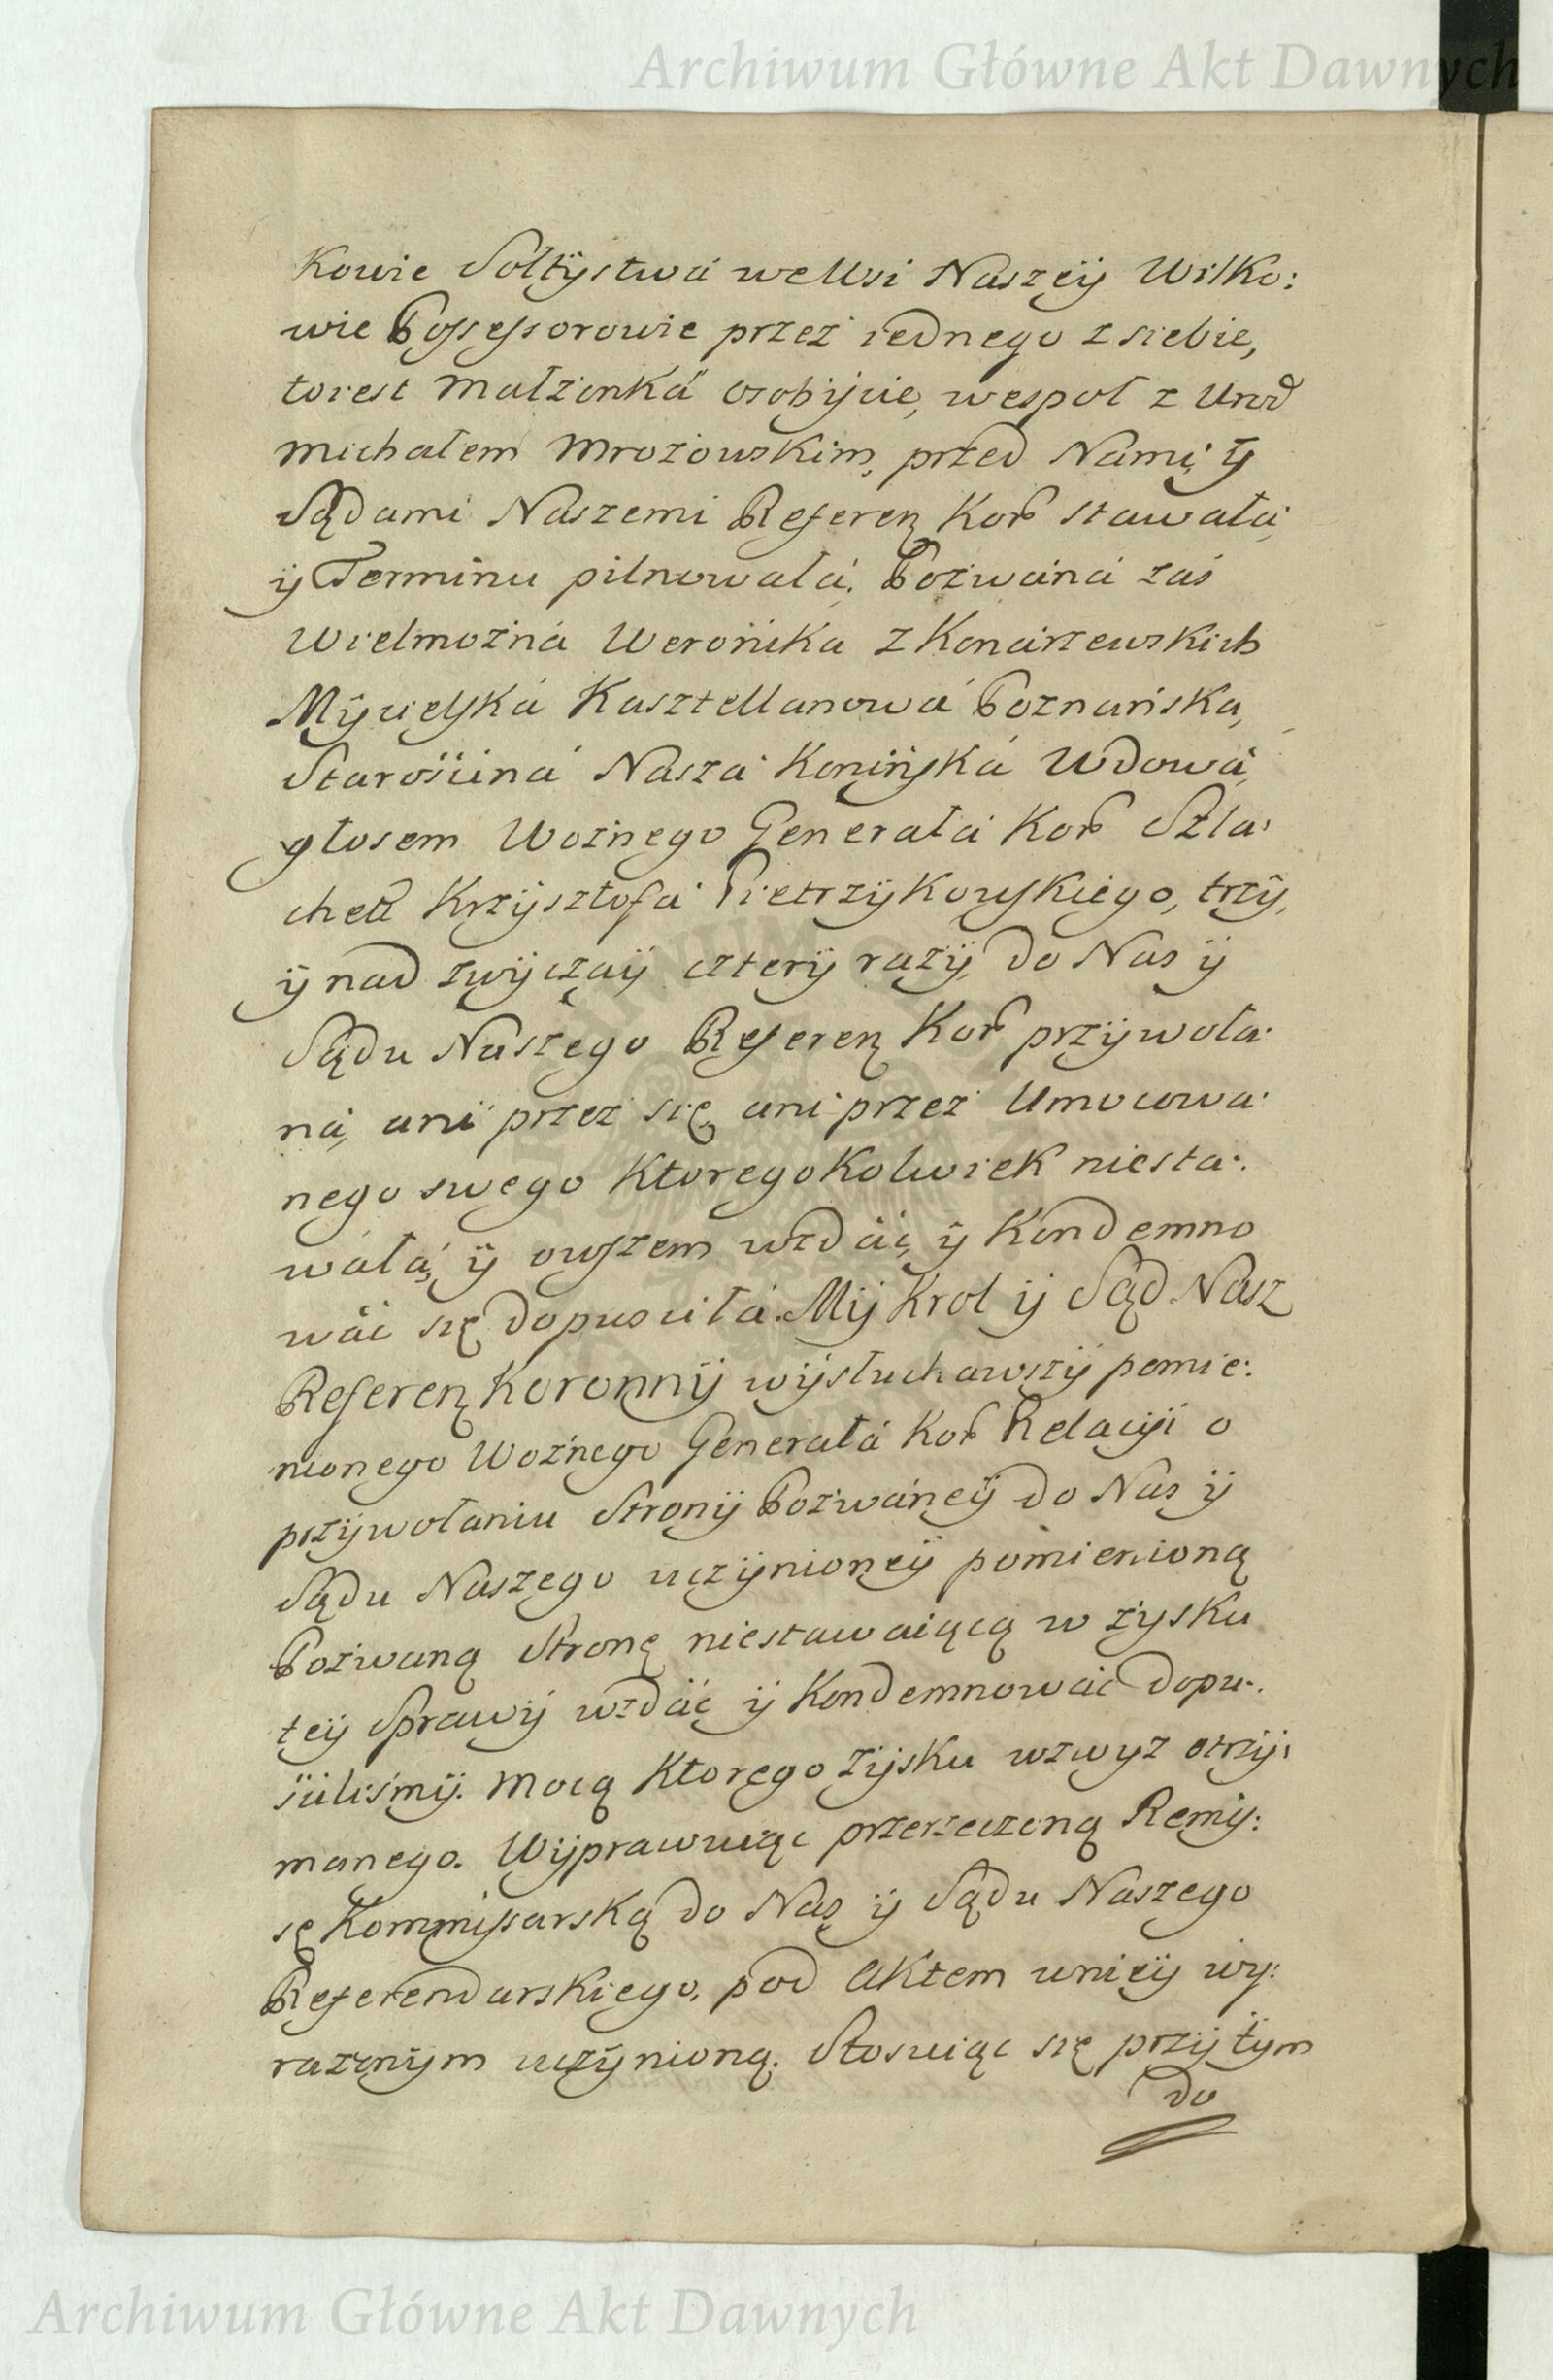 Archiwum Główne Akt Dawnych
kowie Sołtÿstwá we Wsi Naszeÿ Wilko:
wie Possessorowie przez iednego z siebie,
to iest Małżonká osobiscie, wespoł z Urod
Michałem Mrozowskim, przed Nami ÿ
Sądami Naszemi Referen Kor stawałá,
ÿ Terminu pilnowałá. Pozwaná zaś
Wielmożná Weronika z Konárzewskich
Mÿcielská Kasztellanowá Poznańska,
Starościná Naszá Konińská Wdowá,
głosem Woznego Generałá Kor Szla:
chet Krzÿsztofá Pietrzÿkowskiego, trzÿ,
ÿ nad zwÿczaÿ czterÿ razÿ, do Nas ÿ
Sądu Naszego Referen Kor przÿwoła:
ná, ani przez się, ani przez Umocowa:
nego swego ktoregokolwiek niesta:
wałá, ÿ owszem wzdáć, ÿ kondemno
wáć się dopusciłá. Mÿ Krol ÿ Sąd Nasz
Referen Koronnÿ wÿsłuchawszÿ pomie:
nionego Woznego Generałá Kor Relacÿi o
przÿwołaniu Stronÿ Pozwáneÿ do Nas ÿ
Sądu Naszego uczÿnioneÿ pomienioną
Pozwaną Stronę niestawaiącą w zysku
teÿ Sprawÿ wzdáć ÿ kondemnowáć dopu:
śiliśmÿ. Mocą ktorego zÿsku wzwyz otrzÿ:
manego. Wÿprawuiąc przerzeczoną Remis:
sę Kommissarską do Nas ÿ Sądu Naszego
Referendarskiego, pod Aktem w nieÿ wy:
razonÿm uczÿnioną. Stosuiąc się przÿ tÿm
do
Archiwum Główne Akt Dawnych